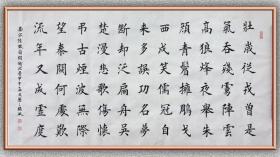 壯歲從戎曾是
氣吞殘虜陣雲
高狼烽夜舉朱
顏青鬢擁雕戈
西戍笑儒冠自
來多誤功名夢
斷卻泛扁舟吳
楚漫悲歌傷懷
弔古煙波無際
望秦關何處歎
流年又成虛度